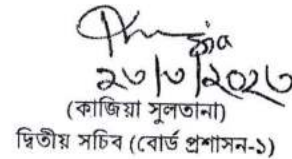 ২০|৩|২০২৩
(কাজিয়া সুলতানা)
দ্বিতীয় সচিব ((বোর্ড প্রশাসন-১)